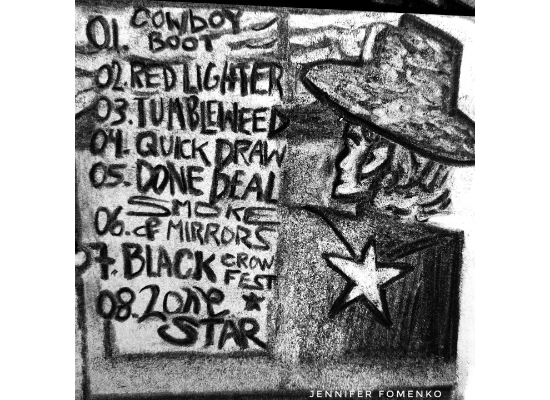 01. COWBOY
BOOT
02. RED LIGHTER
03. TUMBLEWEED
04. QUICK DRAW
05. DONE DEAL
SMOKE
06. & MIRRORS
7. BLACK CROW
FEST
08. Lone
STAR
JENNIFER FOMENKO